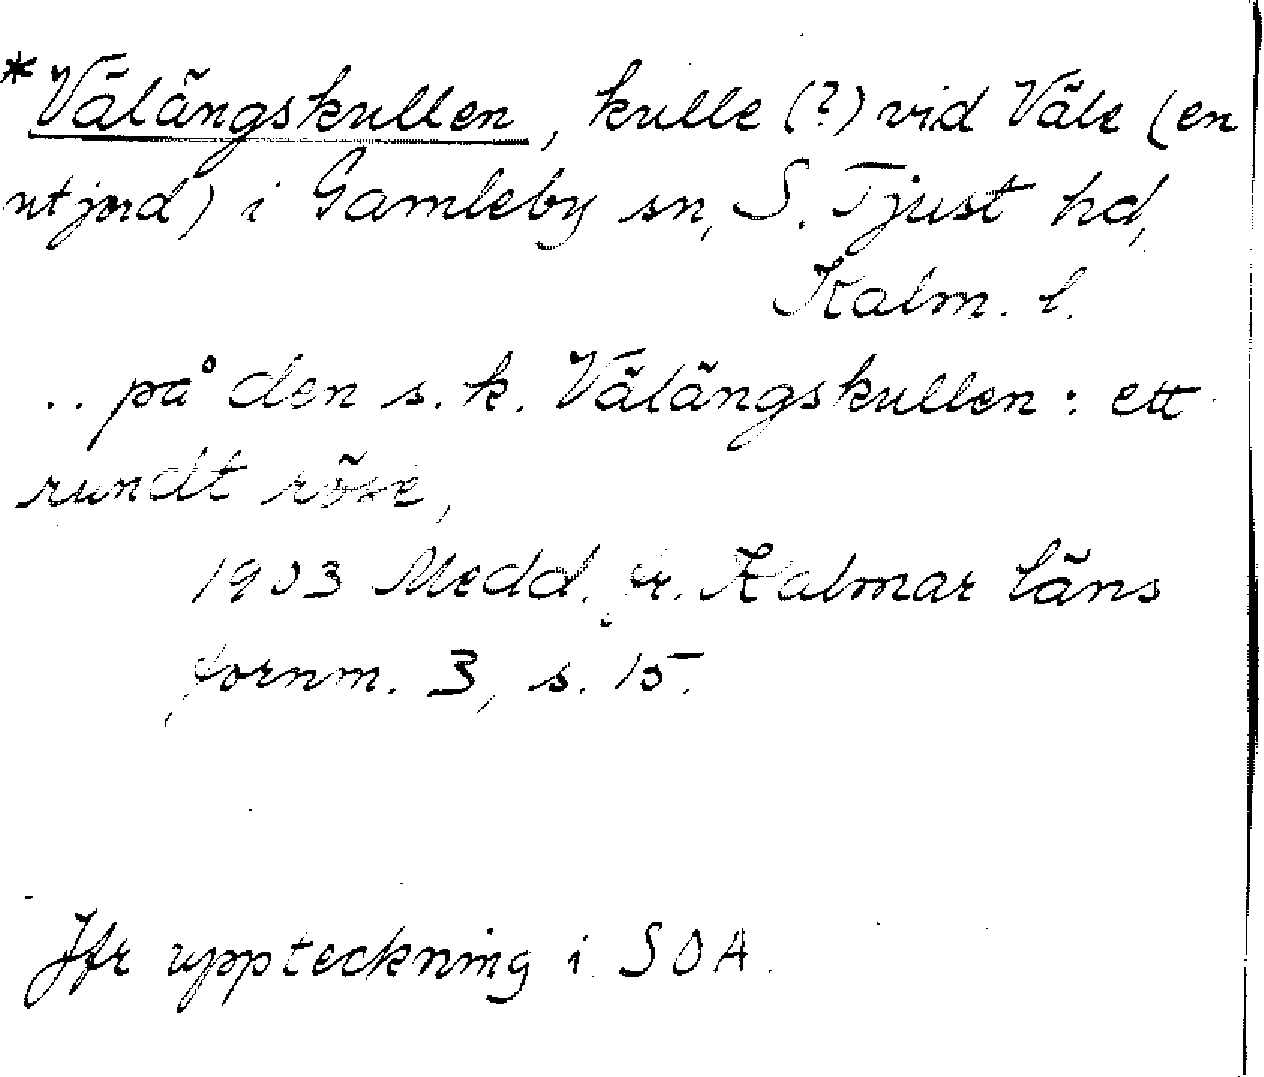 *Välängskullen, kulle (?) vid Väle (en
utjord) i Gamleby sn, S. Tjust hd,
Kalm. l.
.. på den s.k. Välängskullen: ett
rundt röse,
1903 Medd. fr. Kalmar läns
fornm. 3, s. 15.
Jfr uppteckning i SOA.